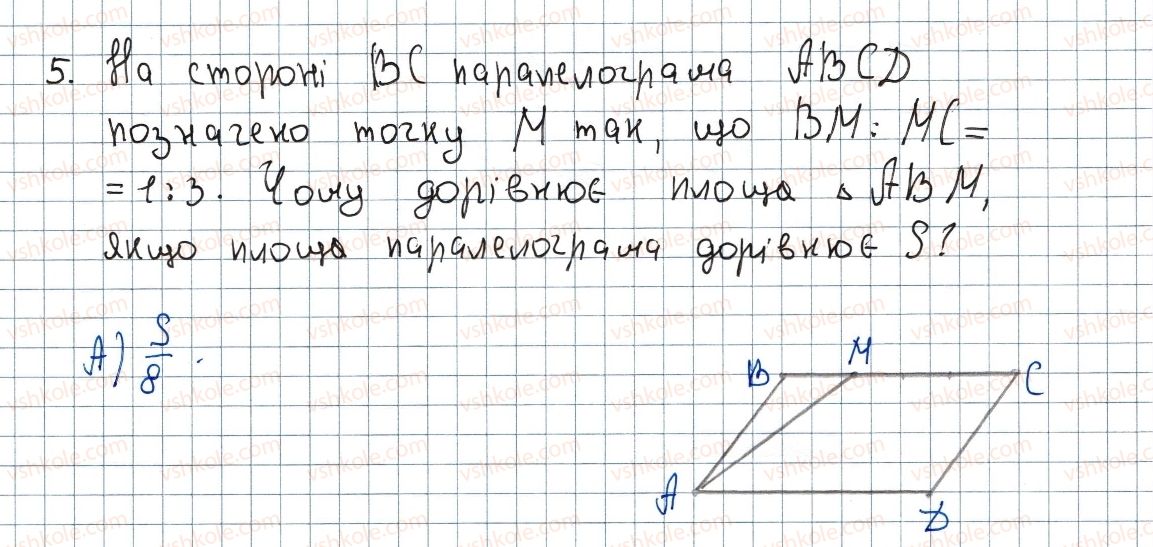 5. На стороні BC паралелограма ABCD
позначено точку M так, що BM : MC =
= 1 : 3. Чому дорівнює площа △ ABM,
якщо площа паралелограма дорівнює S?
А) S/8.
B M C
A D
vshkole.com